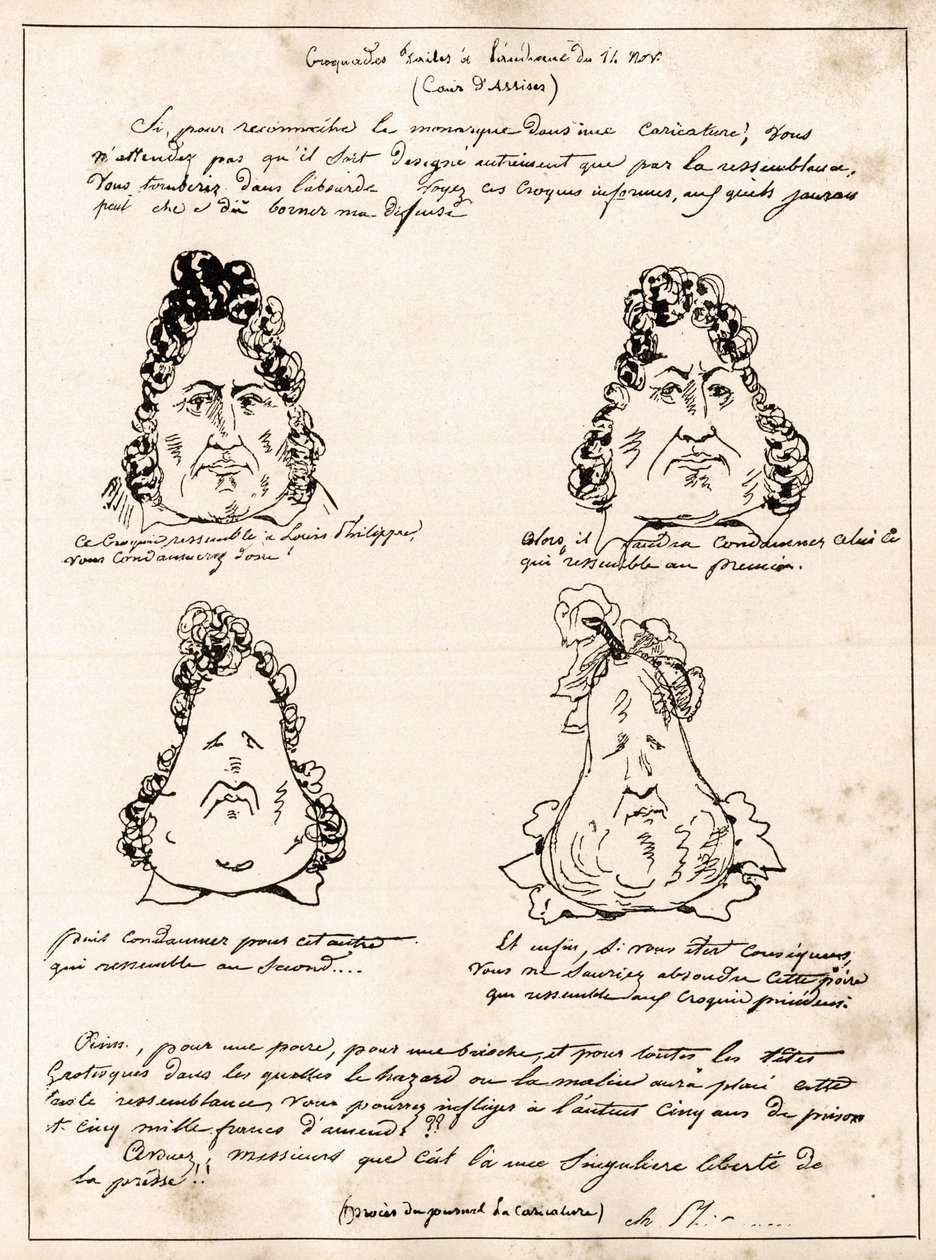 Croquades faites à l'audience du 14 Nov.
(Cour d'Assises)
Si, pour reconnaître le monarque dans une caricature, vous
n'attendez pas qu'il soit designé autrement que par la ressemblance,
Vous tomberez dans l'absurde Voyez ces croquis informes, auxquels j'aurais
peut-être dû borner ma défense
Ce Croquis ressemble à Louis Philippe,
vous Condamnerez donc !
Alors il faudra Condamner Celui Ci
qui ressemble au premier.
Puis Condamner pour cet autre
qui ressemble au second....
Et enfin, Si vous êtes Conséquens,
Vous ne Sauriez absoudre Cette poire
qui ressemble aux Croquis précédens.
Ainsi, pour une poire, pour une brioche, et pour toutes les têtes
Grotesques dans les quelles le hazard ou la malice aura placé cette
triste ressemblance, Vous pourrez infliger à l'auteur Cinq ans de prison
et Cinq mille francs d'amende ??
Avouez, Messieurs que C'est là une Singulière liberté de
la presse !!
(procès du journal La Caricature)
Ch.